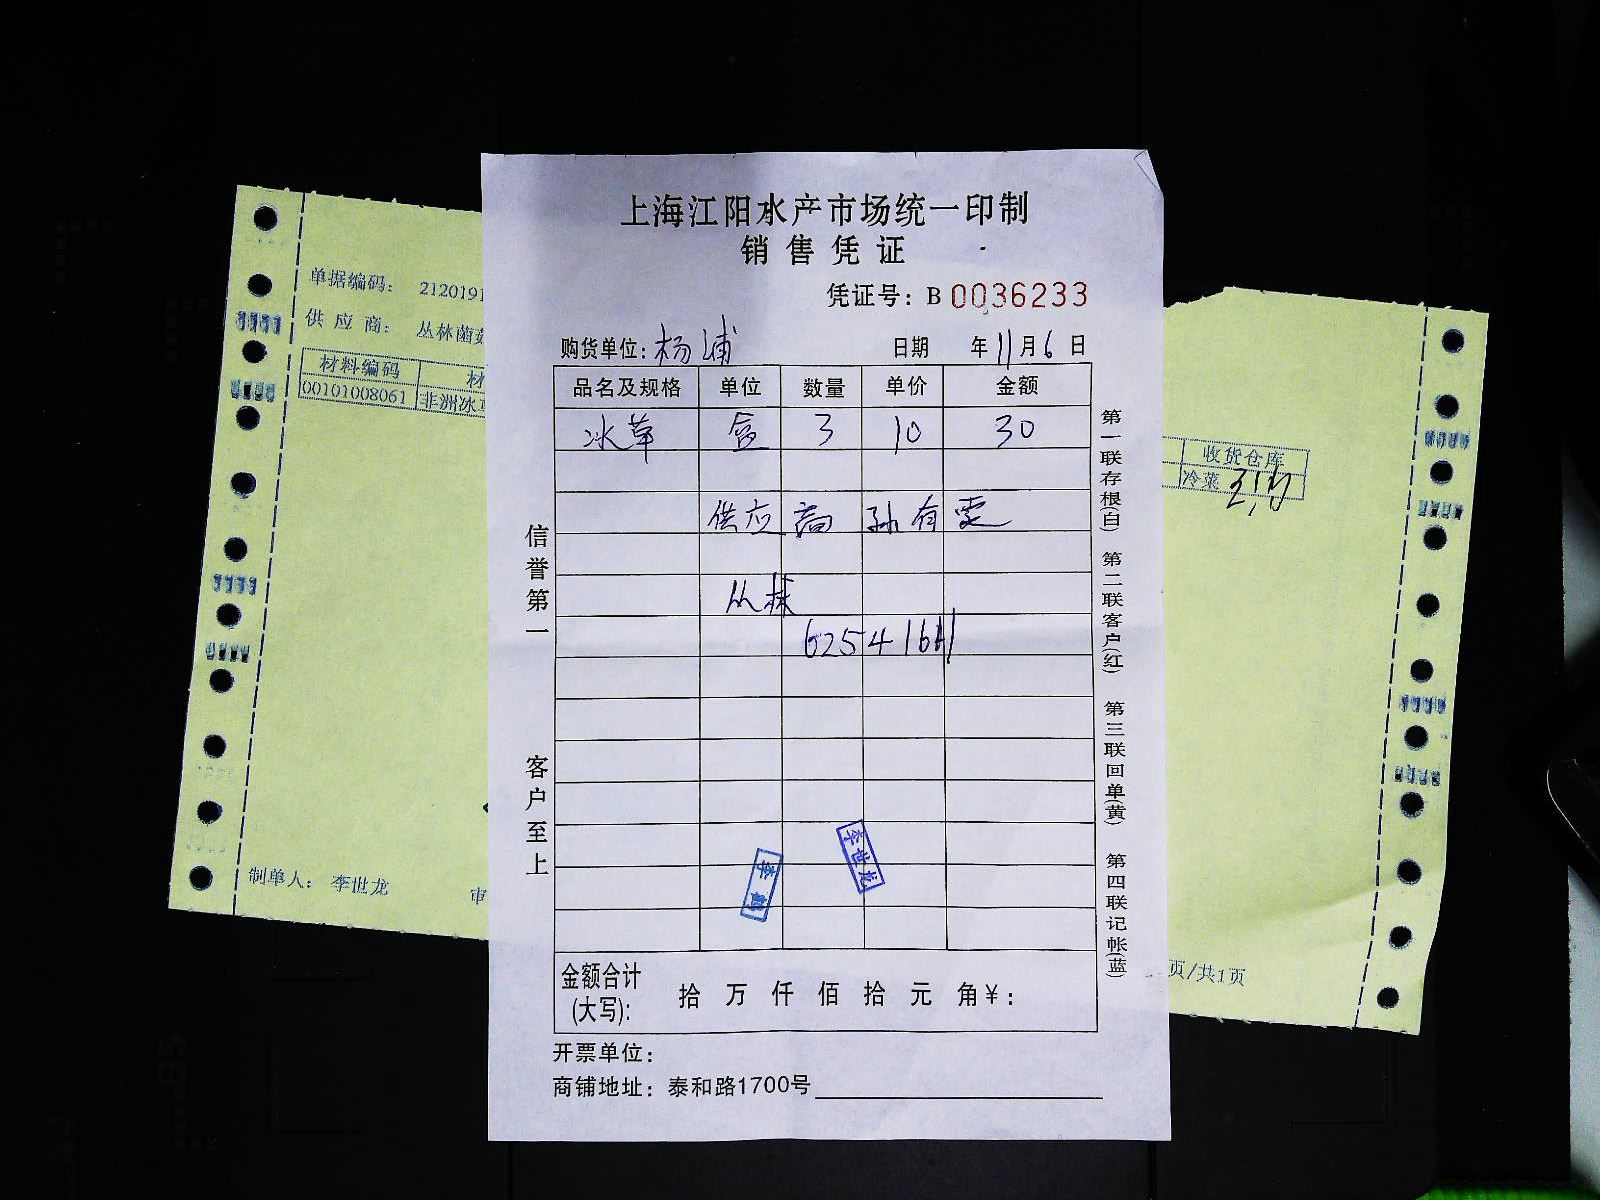 上海江阳水产市场统一印制
销售凭证
凭证号：B 0036233
购货单位：杨浦 日期 年11月6日
品名及规格 单位 数量 单价 金额
冰草 盒 3 10 30
供应商 孙有雯
丛林
6254161
信誉第一 客户至上
第一联存根(白) 第二联客户(红) 第三联回单(黄) 第四联记帐(蓝)
李世龙
李
金额合计
(大写): 拾 万 仟 佰 拾 元 角¥：
开票单位：
商铺地址：泰和路1700号
单据编码： 2120191
供应商： 丛林菌菇
材料编码 材
00101008061 非洲冰草
制单人： 李世龙 审
收货仓库
冷菜
页/共1页